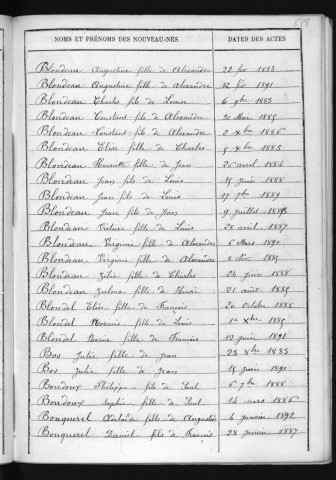 NOMS ET PRÉNOMS DES NOUVEAU-NÉS. DATES DES ACTES
Blondeau Augustine fille de Alexandre 22 fev 1883
Blondeau Augustine fille de Alexandre 12 fev 1891
Blondeau Charles fils de Louis 6 9bre 1883
Blondeau Constant fils de Alexandre 30 Mai 1885
Blondeau Constant fils de Alexandre 2 Xbre 1886
Blondeau Elise fille de Charles 5 Xbre 1885
Blondeau Henriette fille de Jean 26 avril 1884
Blondeau Jean fils de Louis 15 juin 1888
Blondeau Jean fils de Louis 17 7bre 1889
Blondeau Jean fils de Jean 9 juillet
Blondeau Victoire fille de Louis 28 avril 1887
Blondeau Virginie fille de Alexandre 6 Mars 1890
Blondeau Virginie fille de Alexandre fevr 1885
Blondeau Zélie fille de Charles 24 juin 1888
Blondeau Zulma fille de Henri 21 août 1885
Blondel Elise fille de François 20 octobre 1888
Blondel Noémie fille de Louis 1er Xbre 1885
Blondel fille de François 12 juin 1891
Bos Julie fille de Jean 23 8bre 1883
Bos Julie fille de Jean 15 juin 1891
Bondoux Philippe fils de Paul 6 7bre 1888
Bondoux Sophie fille de Paul 14 mars 1886
Bouquerel Adelaïde fille de Auguste 4 janvier 1892
Bouquerel Daniel fils de François 28 janvier 1887